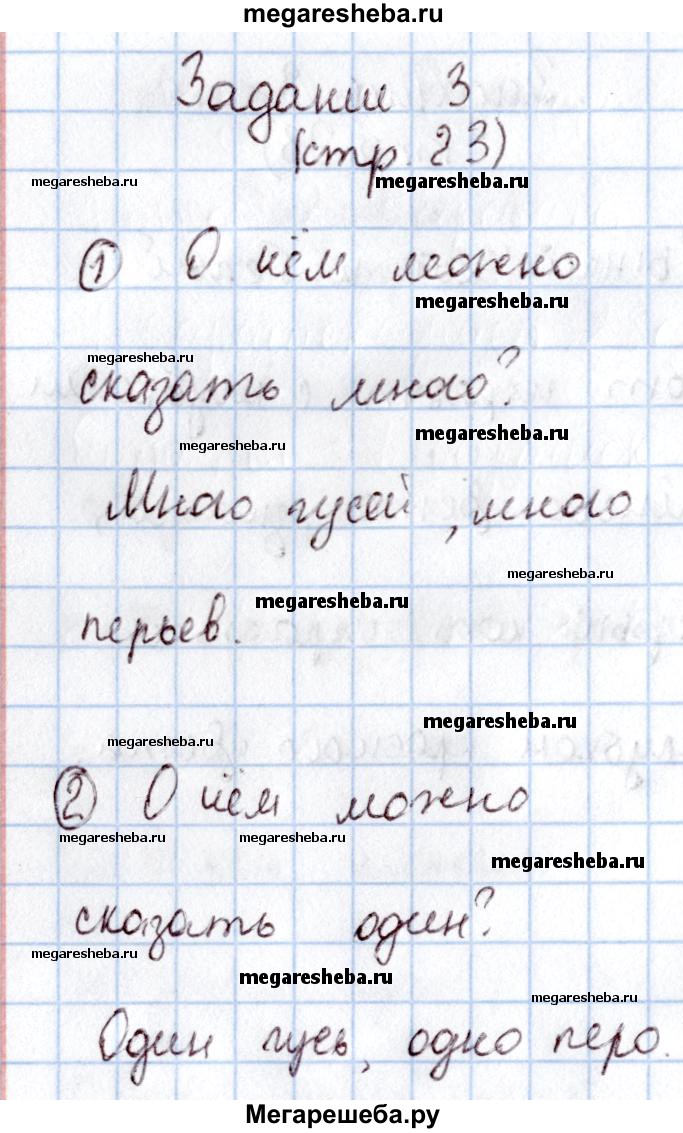 megaresheba.ru
Задание 3
(стр. 23)
megaresheba.ru
megaresheba.ru
1 О чём можно
megaresheba.ru
megaresheba.ru
сказать много?
megaresheba.ru
megaresheba.ru
Много гусей, много
megaresheba.ru
megaresheba.ru
перьев.
megaresheba.ru
megaresheba.ru
2 О чём можно
megaresheba.ru
megaresheba.ru
megaresheba.ru
сказать один?
megaresheba.ru
megaresheba.ru
megaresheba.ru
Один гусь, одно перо.
Мегарешеба.ру